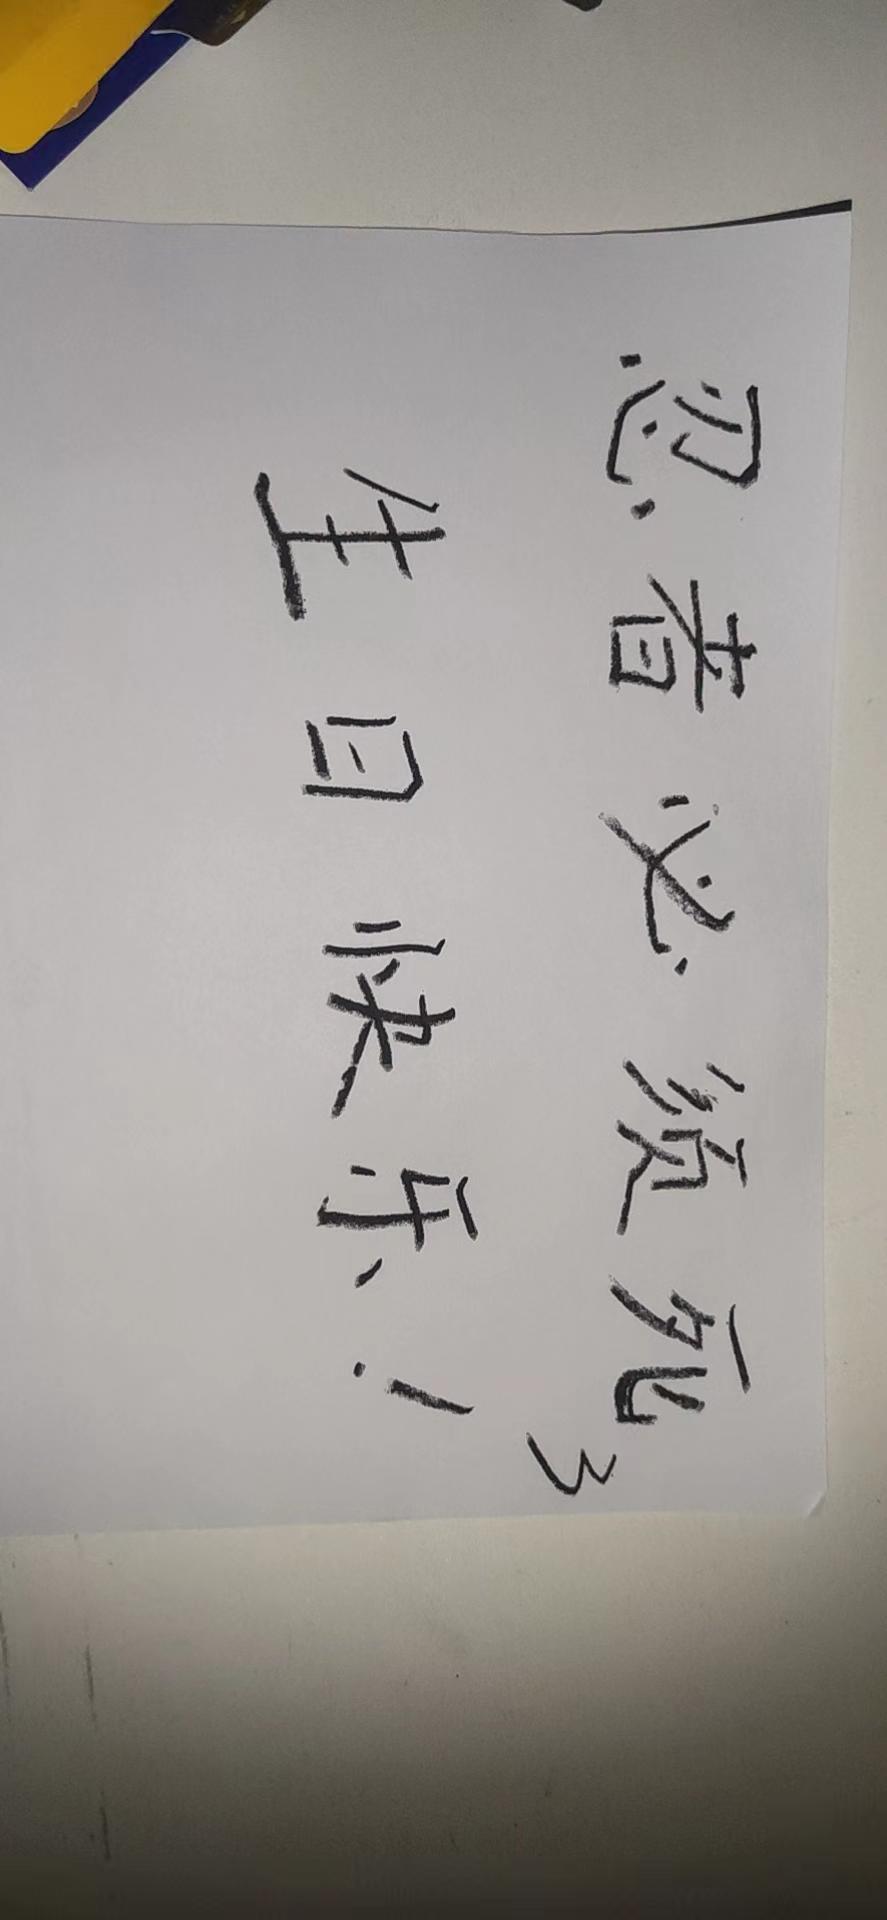 忍者必须死3
生日快乐!